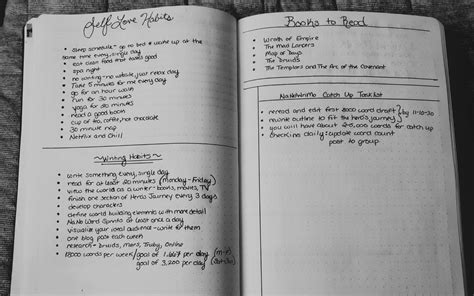 Self Love Habits
• sleep schedule- go to bed & wake up at the
same time every single day
• eat clean food that tastes good
• spa night
• no writing-no website, just relax day
• Take 5 minutes for me every day
• go for an hour wash
• run for 30 minutes
• yoga for 30 minutes
• read a good book
• cup of tea, coffee, hot chocolate
• 30 minute nap
• Netflix and Chill
~Writing Habits~
• write something every single day
• read for at least 20 minutes (Monday-Friday)
• view the world as a writer- books, movies, TV
• finish one section of Hero's Journey every 3 days
• develop characters
• define world building elements with more detail
• NaNo Word Sprints at least once a day
• visualize your ideal audience-write for them
• one blog post each week
• research- druids, mars, Truby, Online
• words per week/goal of 1,667 per day (M-F)
goal of 3,200 per day (Sat-Sun)
Books to Read
• Wrath of Empire
• The Mad Lancers
• Map of Days
• The Druids
• The Templars and The Arc of the Covenant
NaNoWriMo Catch Up Task List
• reread and edit first 3000 word draft } by 11-10-30
• rewrite outline to fit the hero's journey
• you will have about words for catch up
• checking daily: update word count
post to group